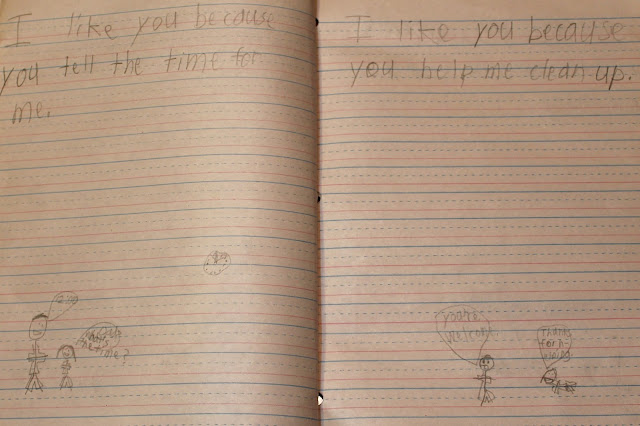 I like you because
you tell the time for
me.
time?
I like you because
you help me clean up.
you're
welcome
Thanks
for h-